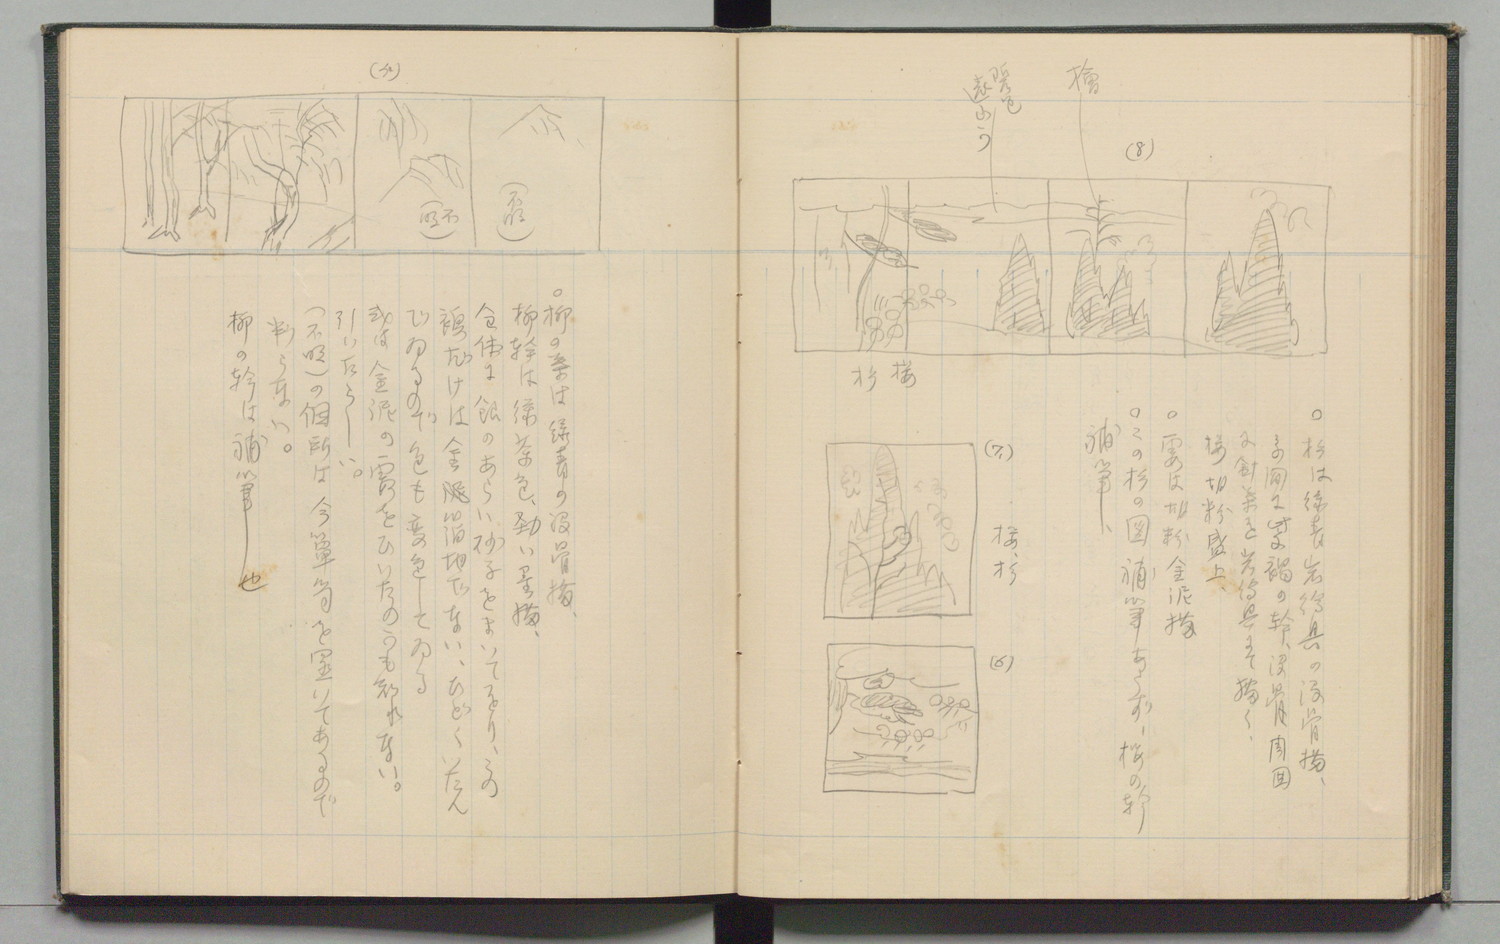 檜
暖色
遠山か
(8)
杉
桜
○杉は緑青岩絵具の没骨描、
其間に紫褐の幹、没骨周囲
に針葉を岩絵具にて描く、
桜切粉盛上、
○雲は切粉金泥描
○この杉の図補筆あらず、桜の幹
補筆、
(7)
桜、杉
(6)
(9)
(不明)
(不明)
○柳の葉は緑青の没骨描、
柳幹は緑茶色、勁い墨描、
全体に銀のあらい砂子をまいてをり、この
襖だけは金泥地でない、ひどくいたん
でゐるので色も変色してゐる
或は金泥の霞をひいたのかも知れない。
引いたらしい。
(不明)の個所は今箪笥を置いてあるので
判らない。
柳の幹は補筆也